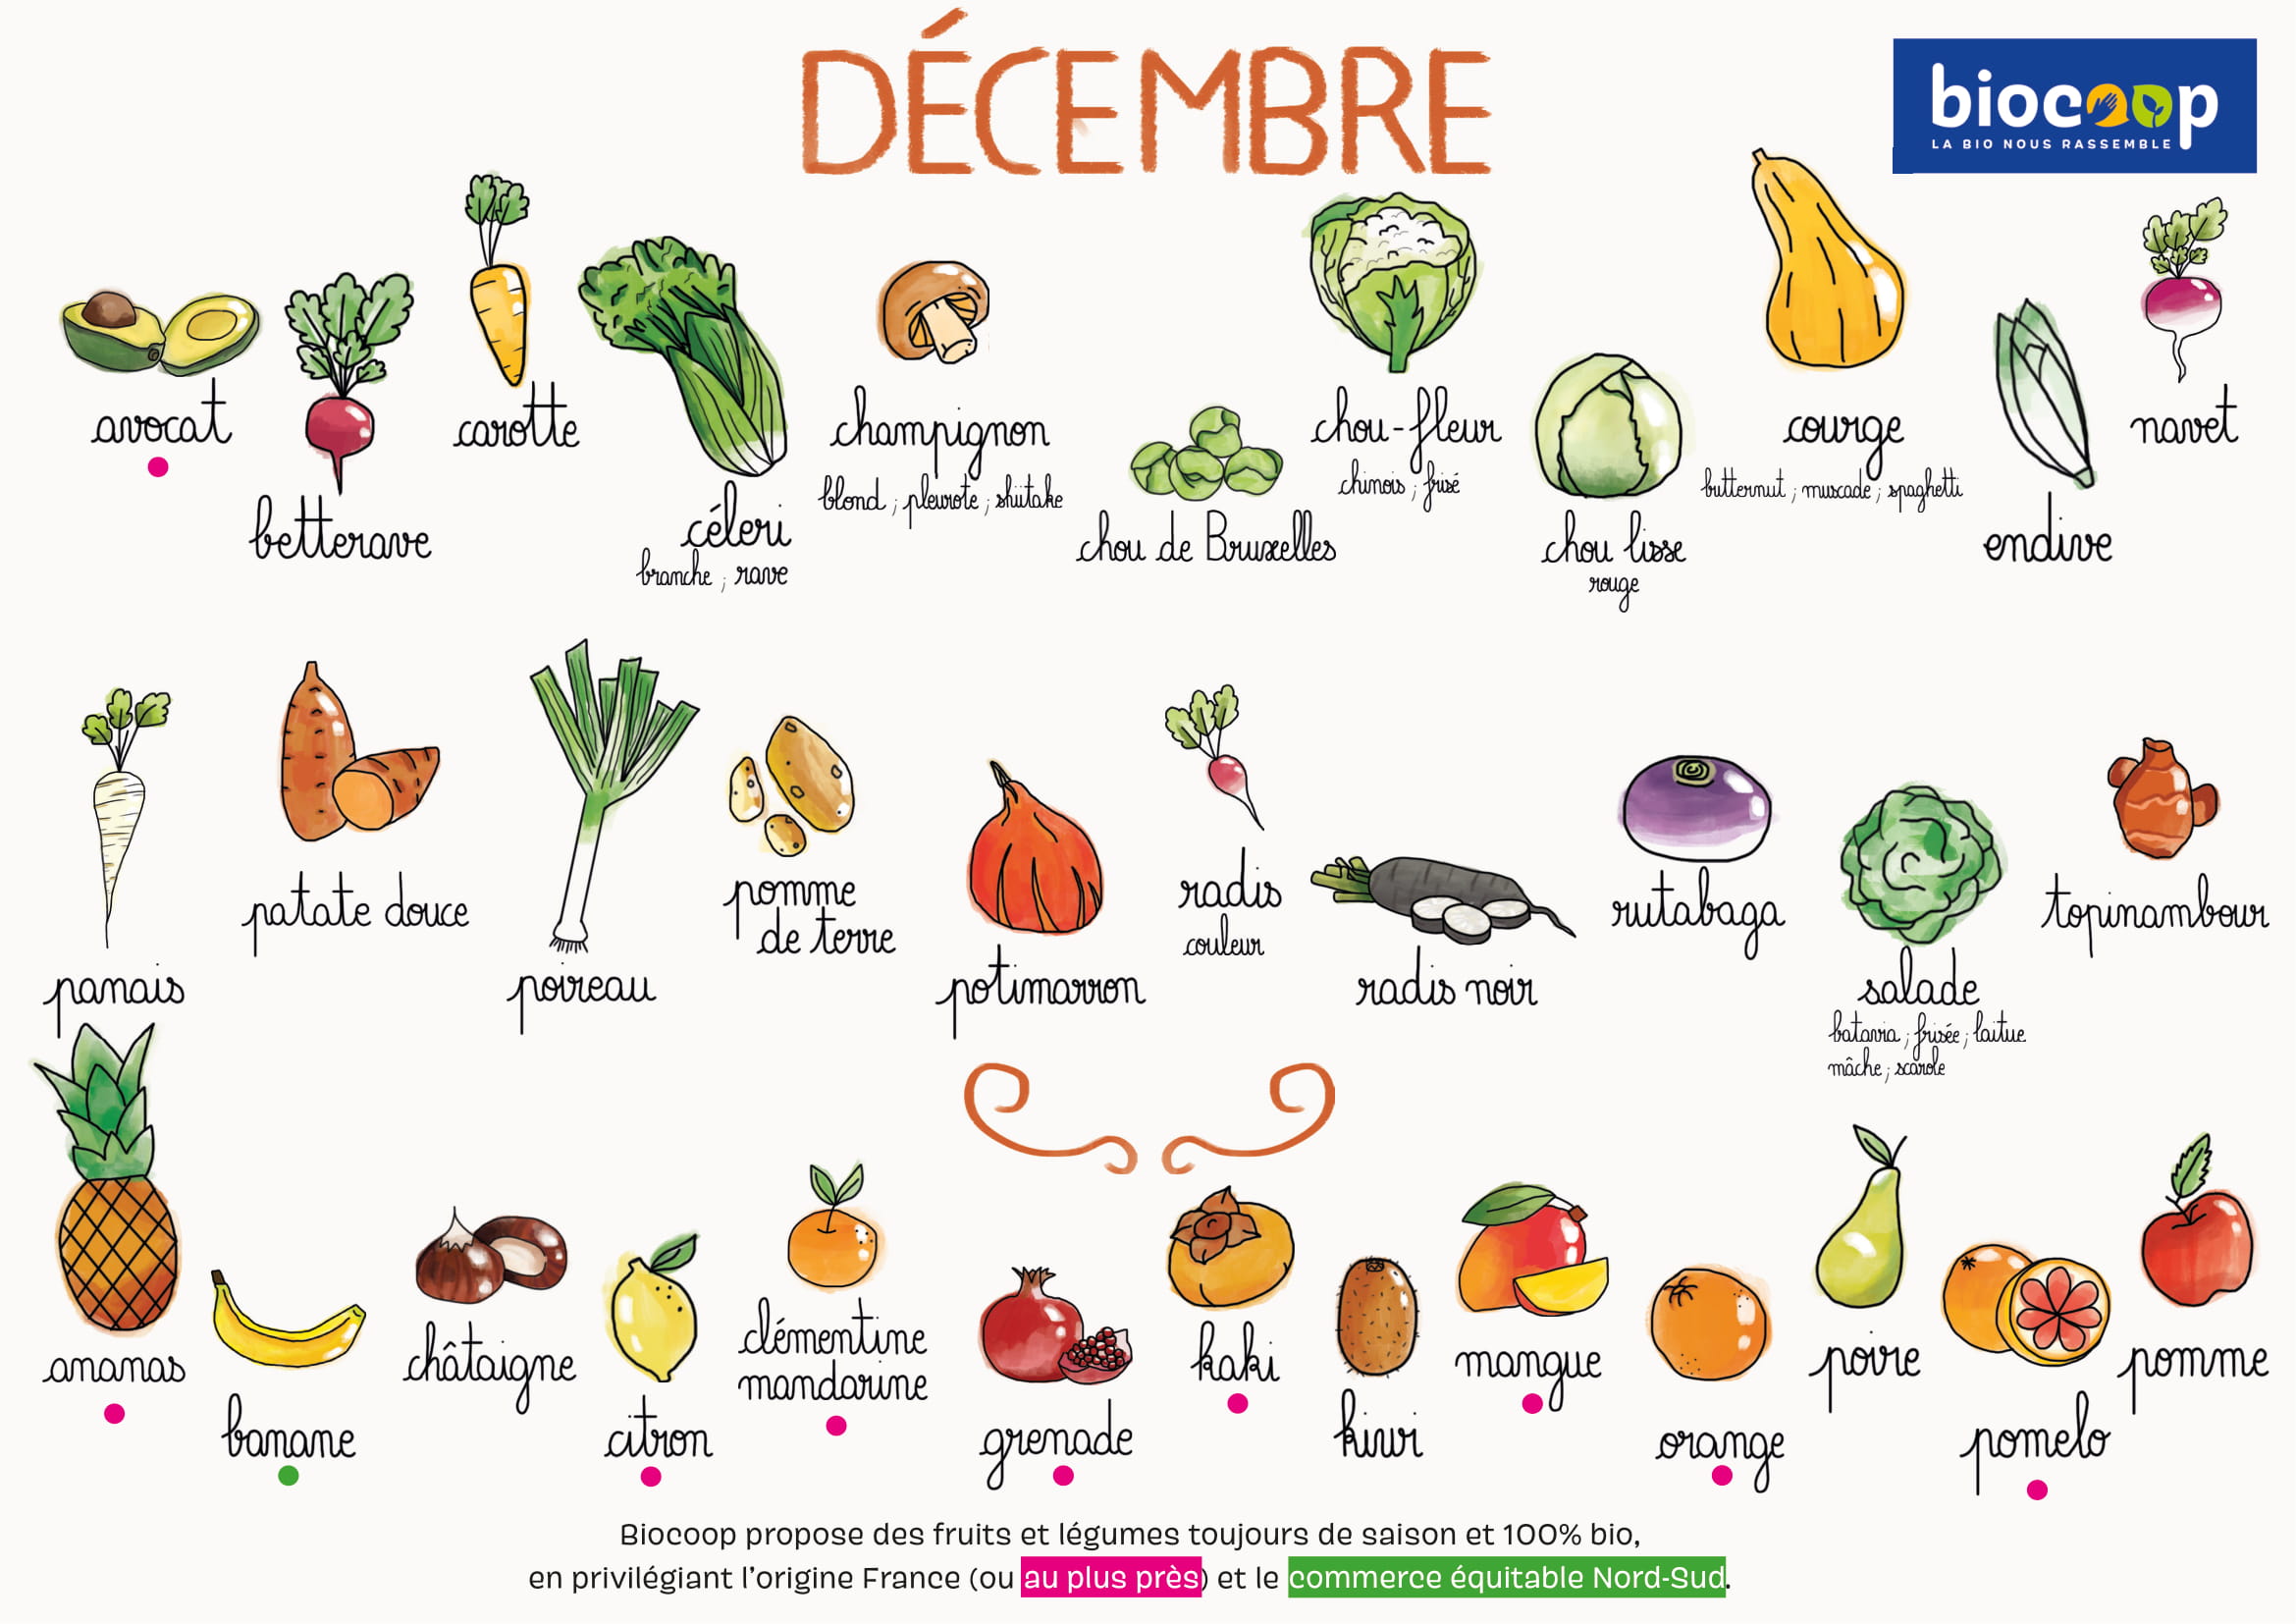 DÉCEMBRE
biocoop
LA BIO NOUS RASSEMBLE
avocat
betterave
carotte
céleri
branche ; rave
champignon
blond ; pleurote ; shiitake
chou de Bruxelles
chou-fleur
chinois ; frisé
chou lisse
rouge
courge
butternut ; muscade ; spaghetti
endive
navet
panais
patate douce
poireau
pomme
de terre
potimarron
radis
couleur
radis noir
rutabaga
salade
batavia ; frisée ; laitue
mâche ; scarole
topinambour
ananas
banane
châtaigne
citron
clémentine
mandarine
grenade
kaki
kiwi
mangue
orange
poire
pomelo
pomme
Biocoop propose des fruits et légumes toujours de saison et 100% bio,
en privilégiant l'origine France (ou au plus près) et le commerce équitable Nord-Sud.